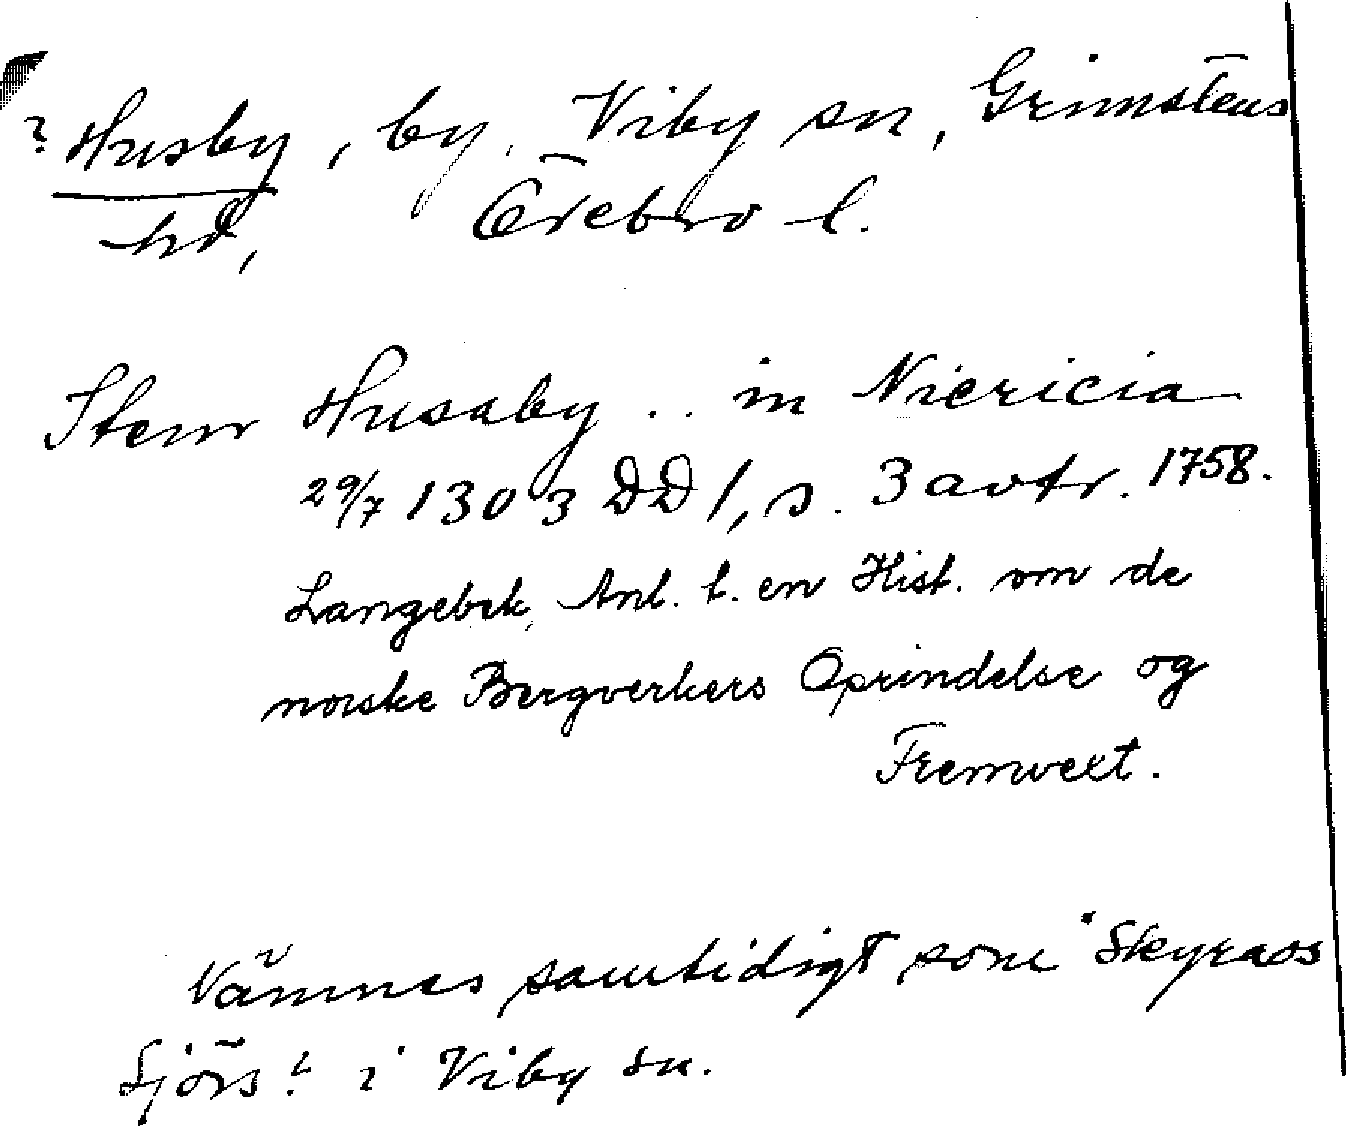 ? Husby, by, Viby sn, Grimstens
hd, Örebro l.
Item Husaby .. in Niericia
29/7 1303 DD 1, s. 3 avtr. 1758.
Langebek, Anl. t. en Hist. om de
norske Bergverkers Oprindelse og
Fremvext.
Nämnes samtidigt som Skyraas
Sjörs? i Viby sn.